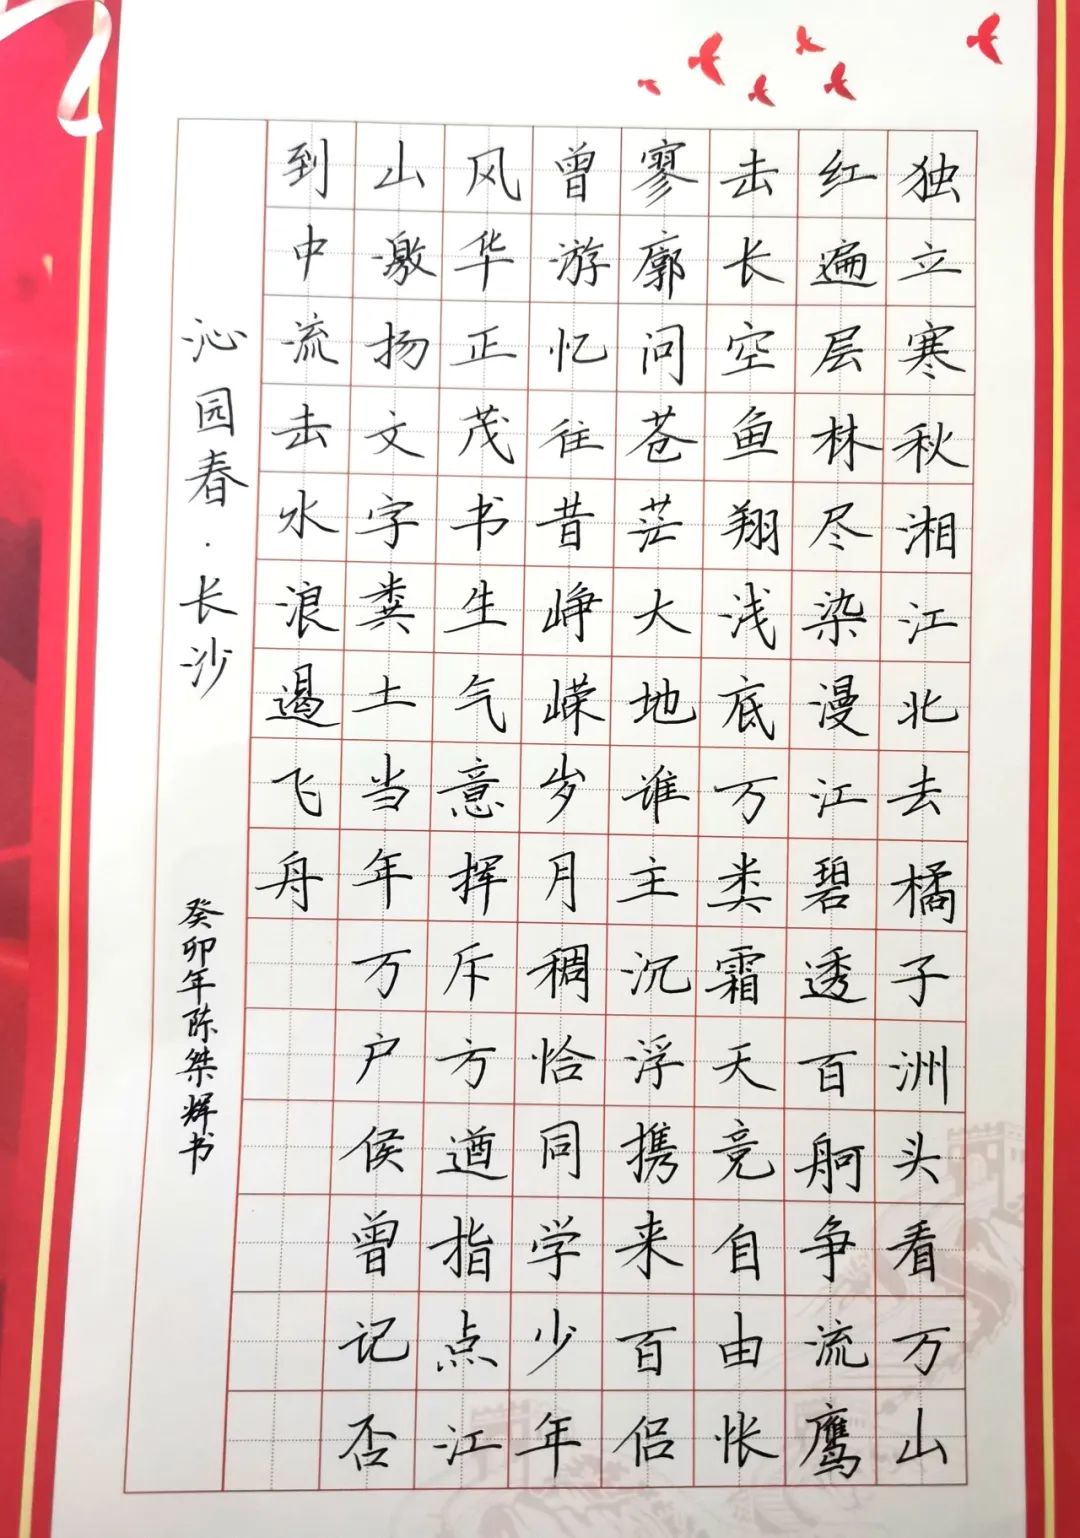 独立寒秋湘江北去橘子洲头看万山
红遍层林尽染漫江碧透百舸争流鹰
击长空鱼翔浅底万类霜天竞自由怅
寥廓问苍茫大地谁主沉浮携来百侣
曾游忆往昔峥嵘岁月稠恰同学少年
风华正茂书生气意挥斥方遒指点江
山激扬文字粪土当年万户侯曾记否
到中流击水浪遏飞舟
沁园春·长沙
癸卯年陈桀辉书